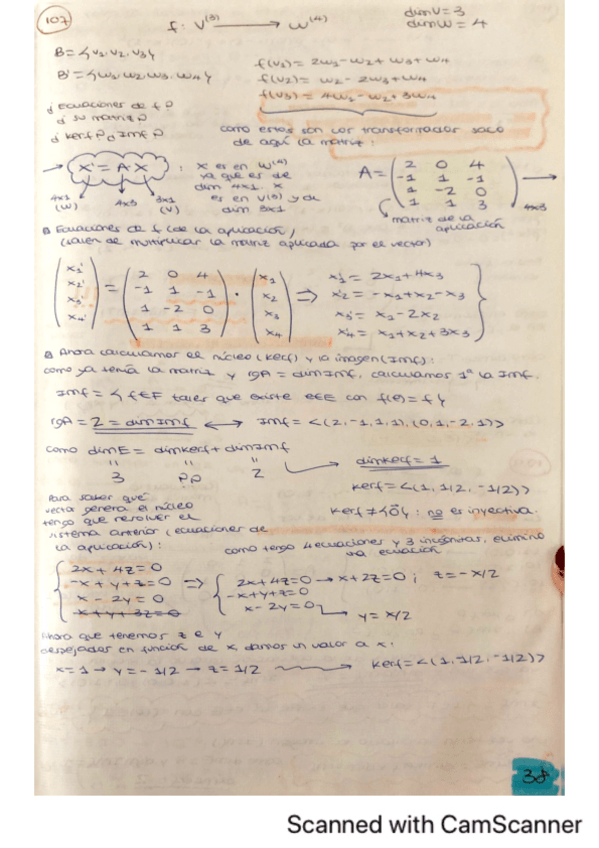 107
f: V⁽³⁾ ⟶ W⁽⁴⁾
dimV = 3
dimW = 4
B = {v1, v2, v3}
B' = {w1, w2, w3, w4}
f(v1) = 2w1 - w2 + w3 + w4
f(v2) = w2 - 2w3 + w4
f(v3) = 4w1 - w2 + 3w4
¿Ecuaciones de f?
¿ su matriz?
¿ Kerf? ¿ Imf?
como estos son los transformados saco
de aquí la matriz:
X' = A·X : X es en W⁽⁴⁾
ya que es de
dim 4x1. X
es en V(3) y de
dim 3x1
4x1 (W) 4x3 3x1 (V)
A = ( 2 0 4
-1 1 -1
1 -2 0
1 1 3 ) 4x3
matriz de la
aplicación
Ecuaciones de f (de la aplicación)
(salen de multiplicar la matriz aplicada por el vector)
(x1' x2' x3' x4') = ( 2 0 4 / -1 1 -1 / 1 -2 0 / 1 1 3 ) · (x1 x2 x3 x4) ⇒
x1' = 2x1 + 4x3
x2' = -x1 + x2 - x3
x3' = x1 - 2x2
x4' = x1 + x2 + 3x3
Ahora calculamos el núcleo (Kerf) y la imagen (Imf):
como ya tenía la matriz y rgA = dimImf, calculamos 1º la Imf.
Imf = { f∈F tales que existe e∈E con f(e) = f }
rgA = 2 = dimImf ⟷ Imf = <(2, -1, 1, 1), (0, 1, -2, 1)>
como dimE = dimKerf + dimImf
3 ¿? 2
dimKerf = 1
Kerf = <(1, 1/2, -1/2)>
Kerf ≠ {0} : no es inyectiva.
Para saber qué
vector genera el núcleo
tengo que resolver el
sistema anterior (ecuaciones de
la aplicación):
como tengo 4 ecuaciones y 3 incógnitas, elimino
una ecuación
2x + 4z = 0
-x + y + z = 0
x - 2y = 0
x + y + 3z = 0
⇒ 2x + 4z = 0 → x + 2z = 0 ; z = -x/2
-x + y + z = 0
x - 2y = 0 → y = x/2
Ahora que tenemos z e y
despejadas en función de x damos un valor a x:
x = 1 → y = -1/2 → z = 1/2 ⟶ Kerf = <(1, 1/2, -1/2)>
38
Scanned with CamScanner